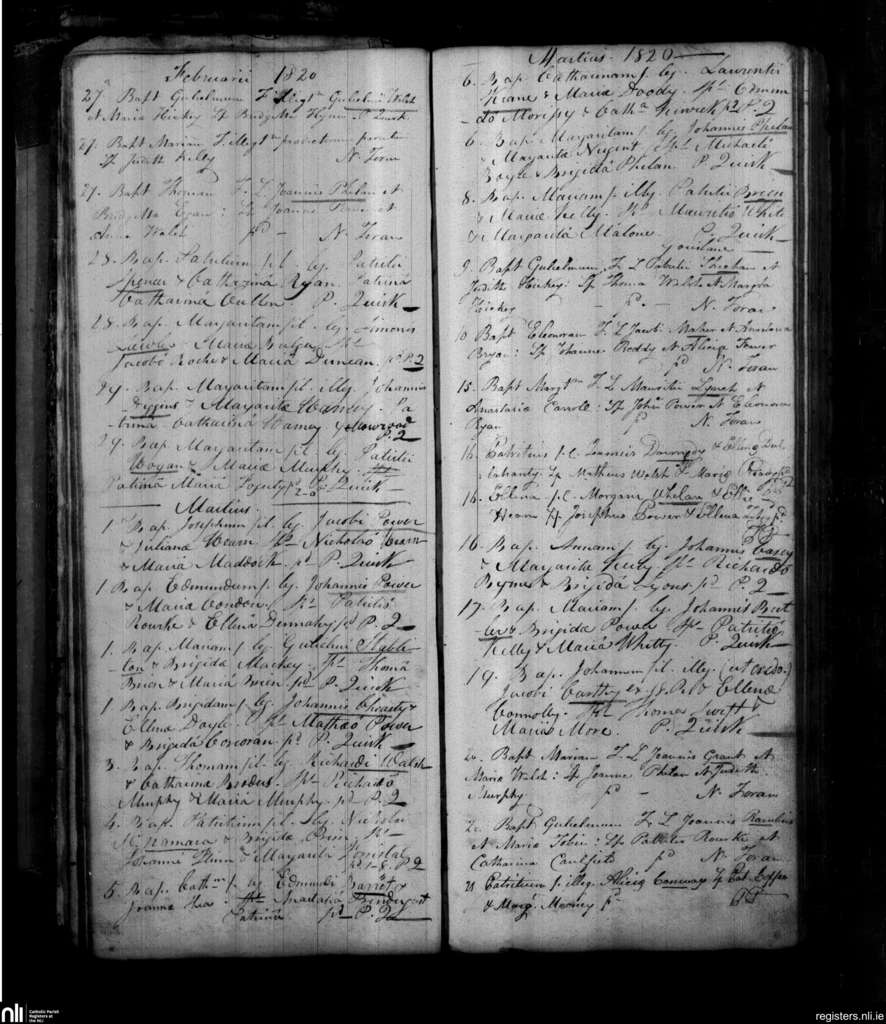 Februarii 1820
27. Bapt Gulielmum F Illegtm Gulielmi Walsh
et Maria Hickey Sp Bridgitta Flynn P. Quirk
27. Bapt Mariam F. Illegtm
Sp Judith Kelly N. Foran
27. Bapt Thomam F. L. Joannis Phelan et
Bridgitta Egan: Sp Joannes et
Anna Walsh pd - N. Foran
28. Bap. Patritium fil. leg. Patritii
Spencer & Catharina Ryan. Patrina
Catharina Cullen. P. Quirk
28. Bap. Margaritam fil. leg. Simonis
& Maria
Jacobo Roche & Mariâ Duncan. pd P. Q
29. Bap. Margaritam fil. illeg. Johannis
Diggins & Margarita Kamey. Pa-
trina Catharina Kamey
P. Q
29. Bap. Margaritam fil. leg. Patritii
Hogan & Maria Murphy.
Patrina Maria Fogerty P. Quirk
Martius.
1 Bap. Josephum fil. leg. Jacobi Power
& Juliana Hearn Spr Nicholaô Hearn
& Mariâ Maddock. pd P. Quirk
1 Bap. Edmundum f. leg. Johannis Power
& Maria Condon. Spr Patritiô
Rourke & Ellenâ Dunnahy pd P. Q
1. Bap. Mariam f. leg. Gulielmi Stable-
ton & Brigida Mackey. Spr Thomâ
Brien & Mariâ Brien pd P. Quirk
1 Bap. Brigidam f. leg. Johannis Christy &
Ellena Doyle. Spr Mathaô Power
& Brigidâ Corcoran pd P. Quirk
3. Bap. Thomam fil. leg. Richardi Walsh
& Catharina Brodus. Spr Richardô
Murphy & Mariâ Murphy. pd P. Q
4. Bap. Patritium fil. leg. Nicholai
McNamara & Brigida Brien Spr
Joanne Flinn & Margarita
P. Q
5. Bap. Cathm f. leg Edmundi Barret &
Joanna Shea. Anastasia Prendergast
Patrina pd P. Q
Martius. 1820
6. Bap. Catharinam f. leg. Laurentii
Keane & Maria Doody. Spr Edmun-
do Morissy & Cathna Kenrick pd P. Q
6. Bap. Margaritam f. leg. Johannis Phelan
& Margarita Nugent Spr Michaelô
Boyle & Brigidâ Phelan P. Quirk
8. Bap. Mariam f. illeg. Patritii Breen
& Maria Kelly. Spr Mauritiô White
& Margaritâ Malone. P. Quirk
9. Bapt Gulielmum F L Patritii Sheehan et
Judith Hickey: Sp Thoma Walsh et Margta
Hickey - P. - N. Foran
10 Bapt Eleonoram F. L Jacobi Maher et Anastasia
Bryan: Sp Johanne Roddy et Alicia Power
pd N. Foran
15. Bapt Margtm F L Mauritii Lynch et
Anastasia Carroll: Sp John Power et Eleonora
Ryan P N. Foran
16. Patritius f.l. Joannis & Ellena
Sp Matheus Walsh & Maria
16. Ellena f.l. Morgani Whelan & Ellen
Hearn Sp Josephus Power & Ellena
16. Bap. Annam f. leg. Johannis Casey
& Margarita Spr Richardô
Byrne & Brigidâ Lyons pd P. Q
17. Bap. Mariam f. leg. Johannis But-
ler & Brigida Power Spr Patritiô
Kelly & Mariâ Whitty P. Quirk
19. Bap. Johannem fil. illeg. (ut credo)
Jacobi Carthy & Ellena
Connolly. Spr Thomas Swift &
Maria More. P. Quirk
20. Bapt Mariam F. L Joannis Grant et
Maria Walsh: Sp Joanne Phelan et Judith
Murphy pd - N. Foran
20. Bapt Gulielmum F. L Joannis
et Maria Tobin: Sp Patritio Rourke et
Catharina pd N. Foran
21 Patritium f. illeg. Alicia Conway Sp Pat
& Marg. Mooney pd
registers.nli.ie
nli
Catholic Parish
Registers at
the NLI